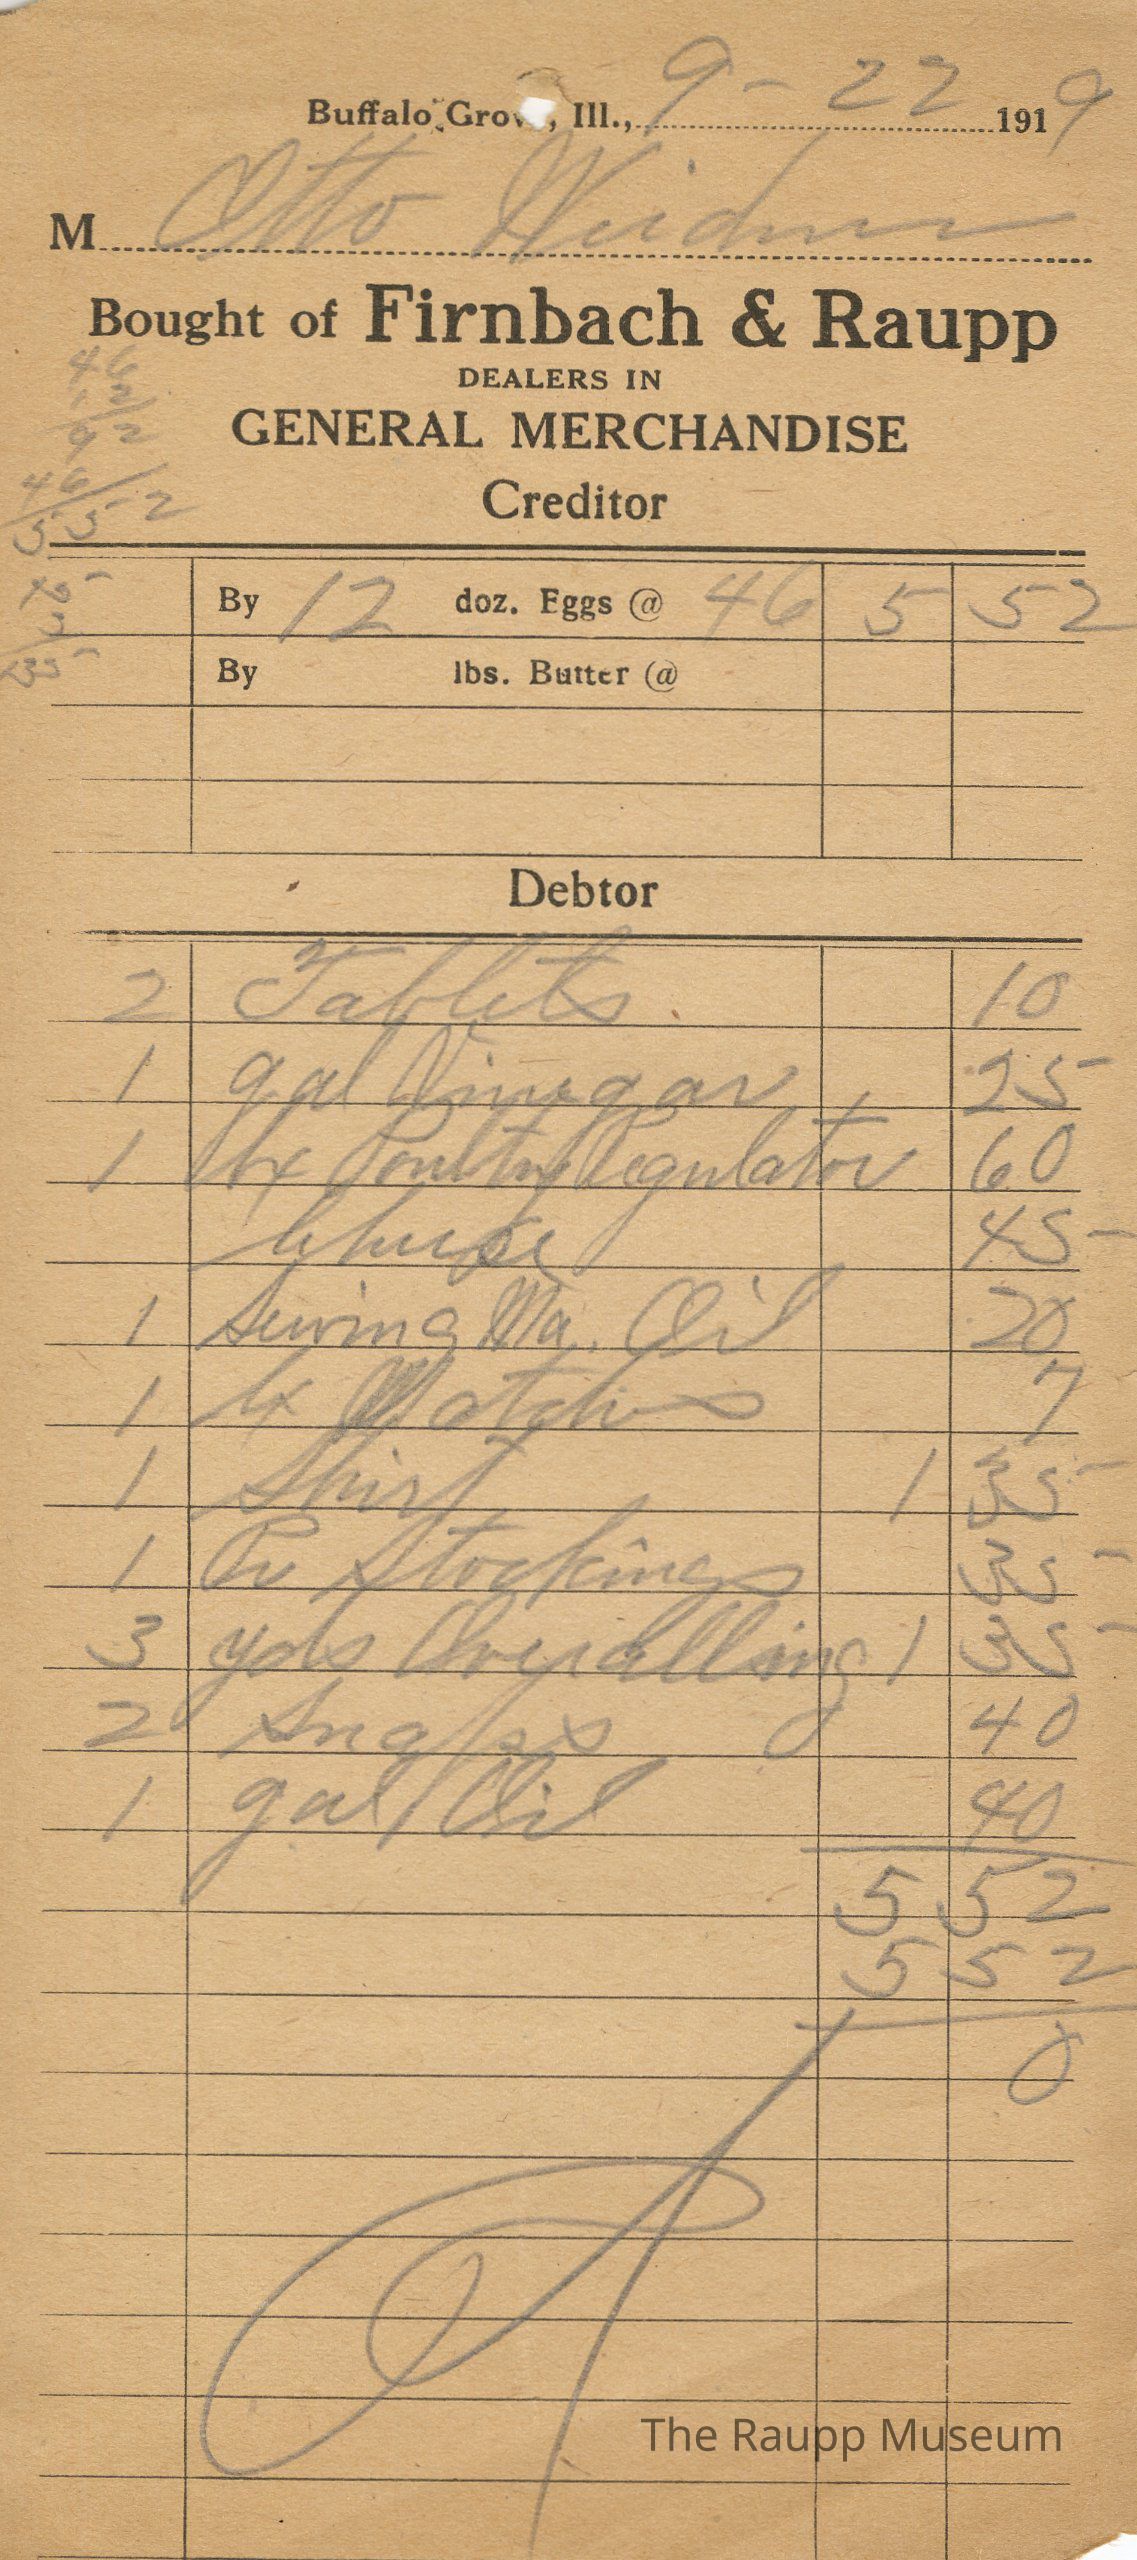 Buffalo Grove, Ill., 9-22 1919
M Otto Weidner
Bought of Firnbach & Raupp
DEALERS IN
GENERAL MERCHANDISE
Creditor
46
12
92
46
552
45
3
135
By 12 doz. Eggs @ 46 5 52
By lbs. Butter @
Debtor
2 Tablets 10
1 gal Vinegar 25
1 bx Poultry Regulator 60
Cheese 45
1 Sewing Ma. Oil 20
1 bx Matches 7
1 Shirt 1 35
1 Pr Stockings 35
3 yds Overalling 1 35
2 40
1 gal Oil 40
5 52
5 52
0
The Raupp Museum